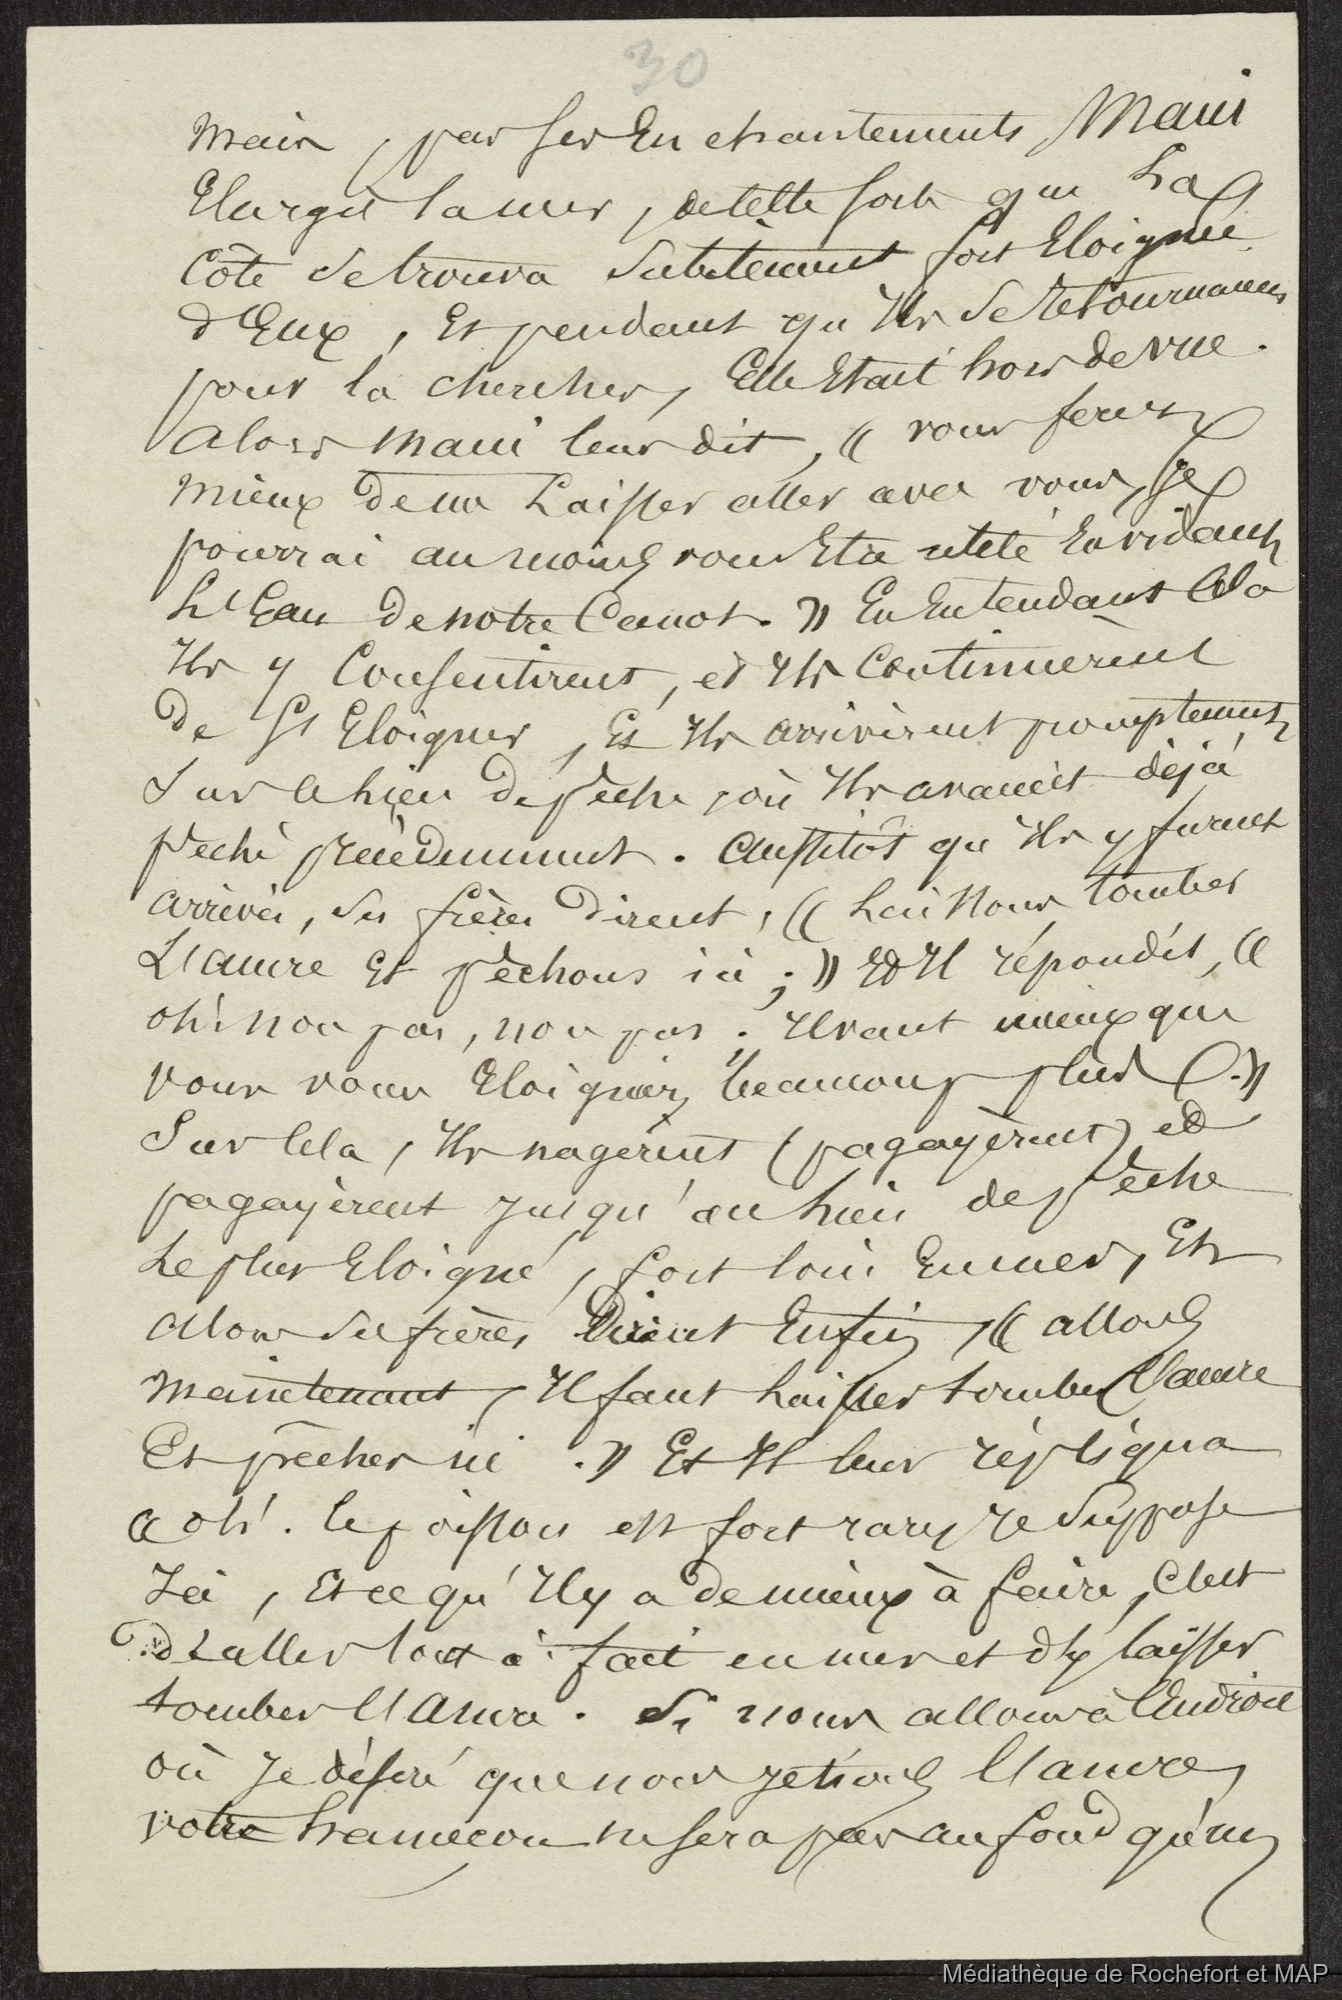 30
mais, par ses Enchantements, Maui
Elargit la mer, de telle sorte que La
Côte se trouva subitement fort Eloignée
d'Eux, Et pendant qu'Ils se retournaient
pour la chercher, Elle Etait hors de vue.
alors Maui leur dit, « vous ferez
mieux de me Laisser aller avec vous, Je
pourrai au moins vous Etre utile En vidant
L'Eau de notre Canot. » En Entendant Cela
Ils y Consentirent, et Ils Continuèrent
de s'Eloigner, Et Ils arrivèrent promptement
Sur le lieu de pêche, où Ils avaient déjà
pêché précédemment. aussitôt qu'Ils y furent
arrivés, ses frères dirent, « Laissons tomber
L'ancre Et pêchons ici ; » Et Il répondit, «
oh! non pas, non pas ; Il vaut mieux que
vous vous Eloigniez beaucoup plus. »
Sur Cela, Ils nagèrent (pagayèrent) et
pagayèrent jusqu'au lieu de pêche
Le plus Eloigné, fort loin En mer, Et
alors ses frères Dirent Enfin, « allons
maintenant, Il faut Laisser tomber l'ancre
Et pêcher ici. » Et Il leur répliqua
« oh! le poisson est fort rare, je suppose
Ici, Et ce qu'Il y a de mieux à faire, C'est
d'aller tout à fait en mer et d'y laisser
tomber l'ancre. Si nous allons à l'Endroit
où je désire que nous jetions l'ancre,
votre hameçon ne sera pas au fond qu'un
Médiathèque de Rochefort et MAP